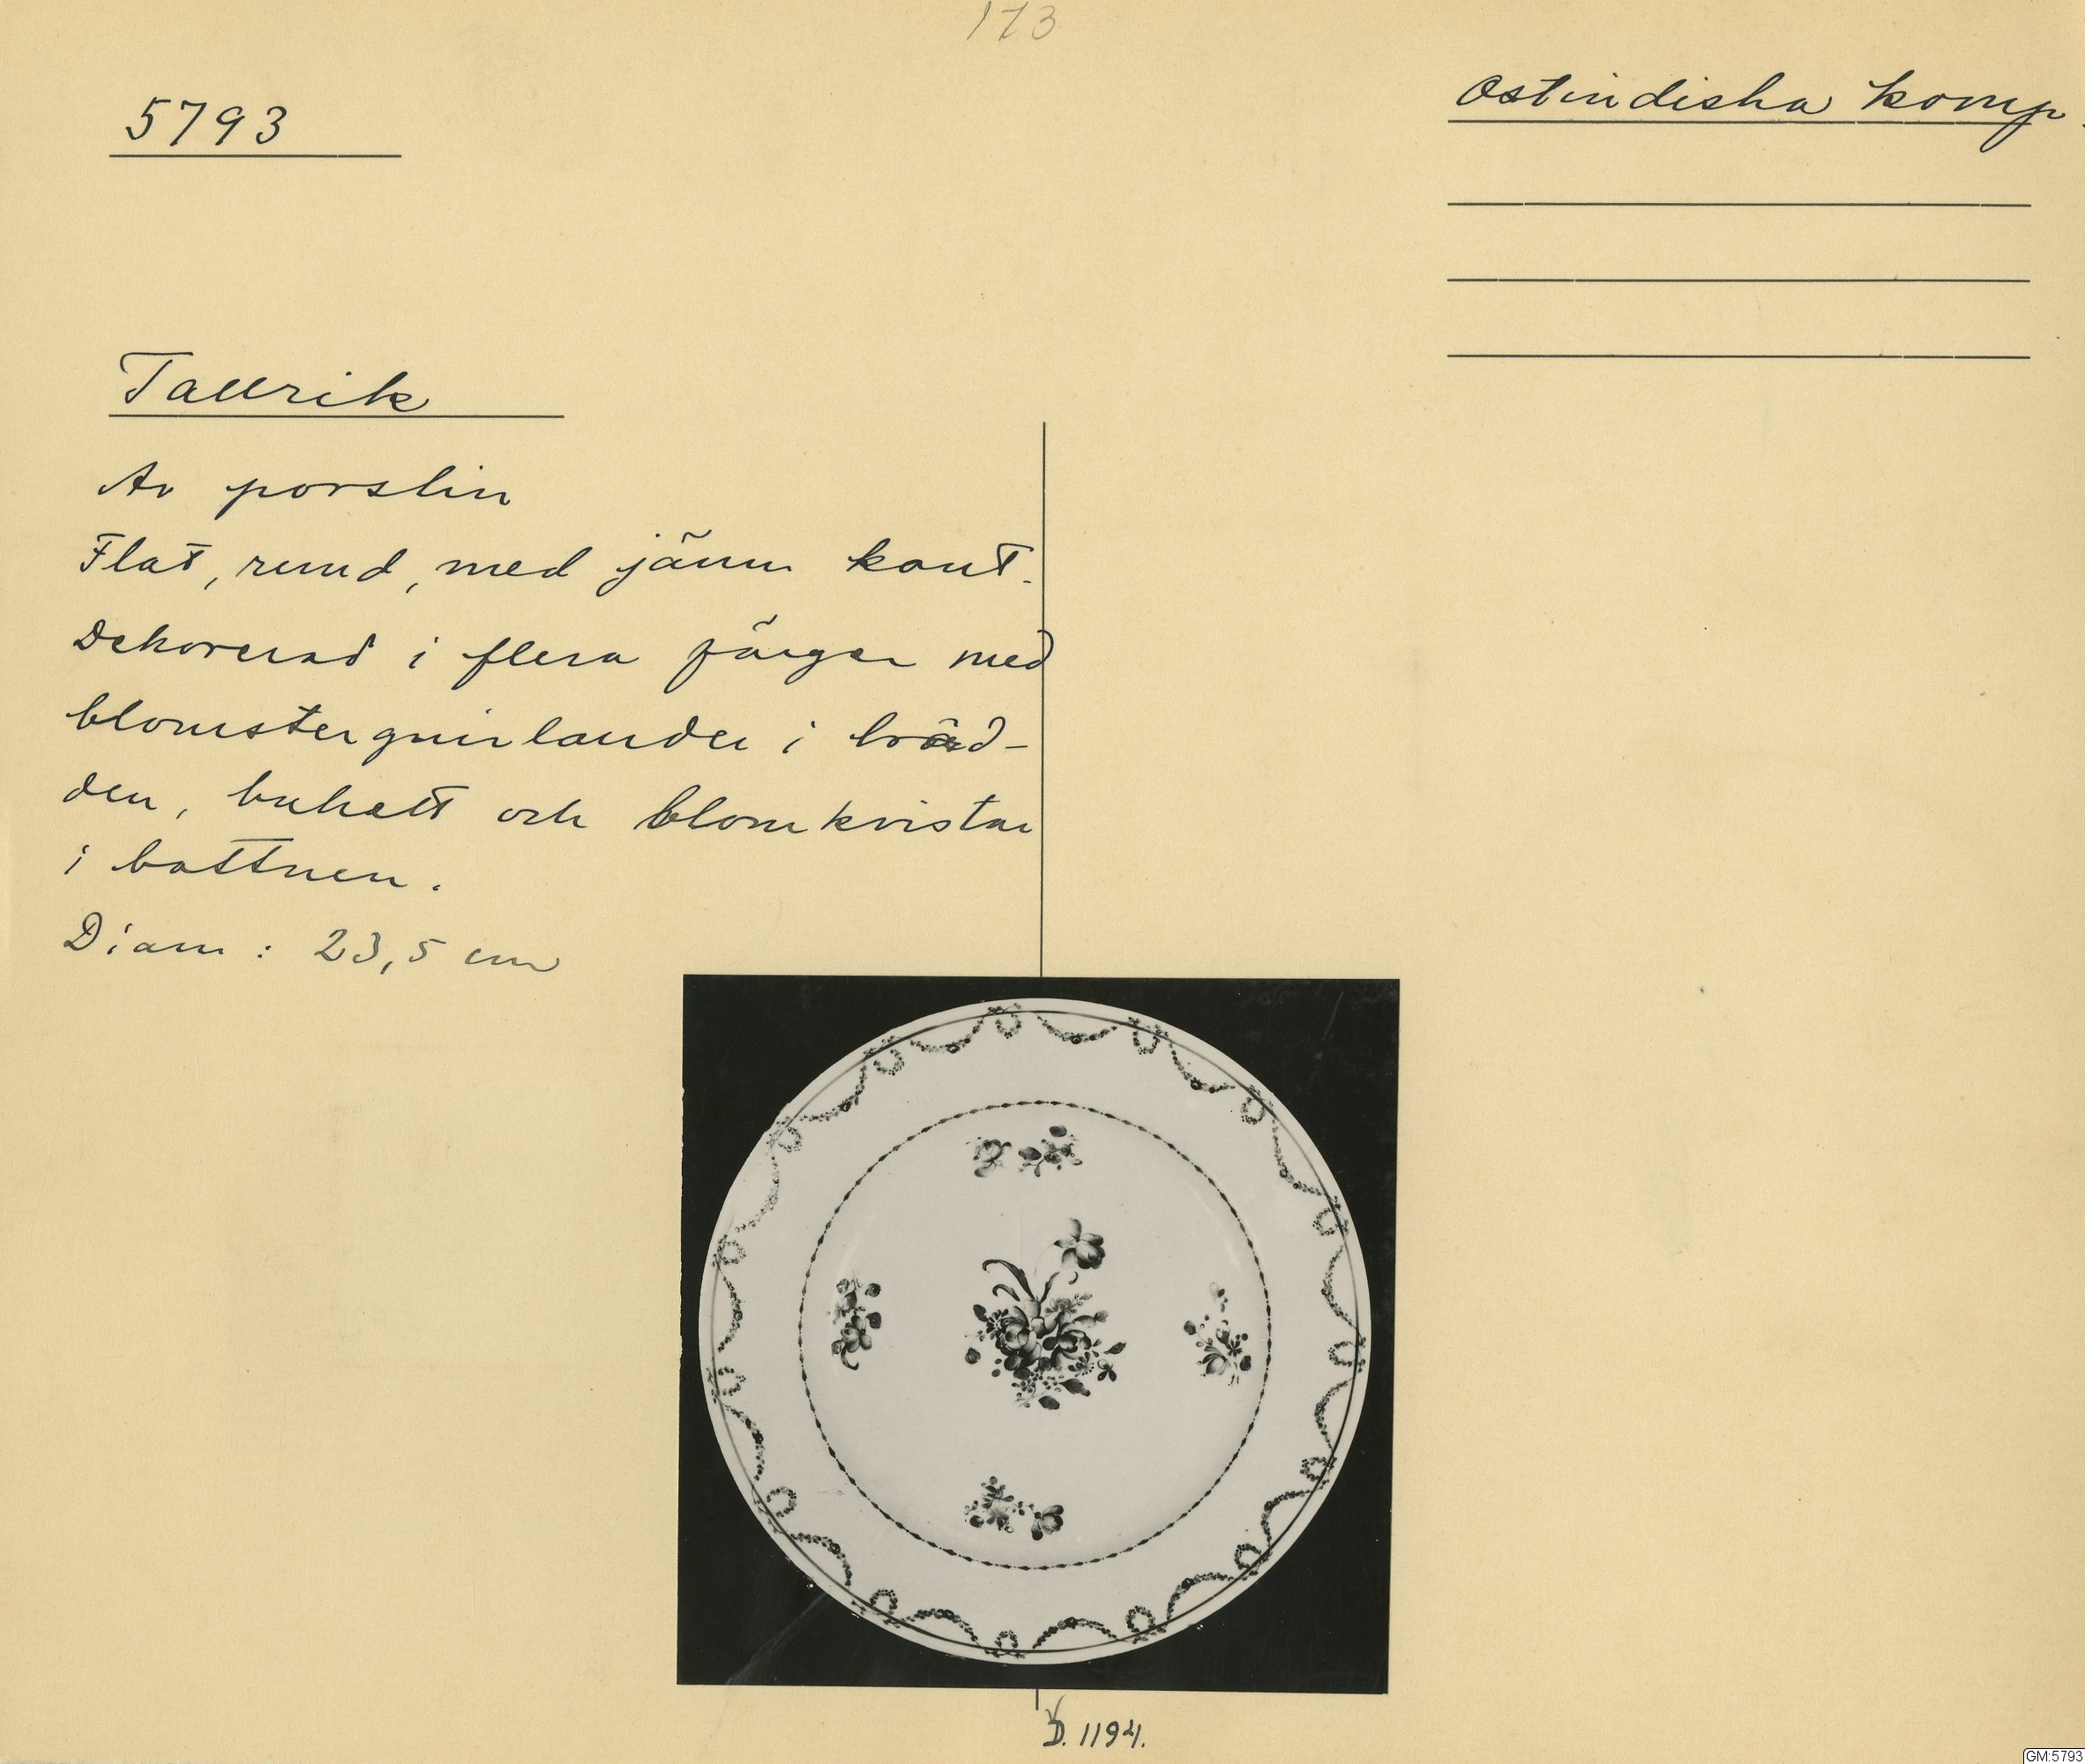 173
5793
Ostindiska komp.
Tallrik
Av porslin
Flat, rund, med jämn kant.
Dekorerad i flera färger med
blomsterguirlander i bräd-
den, bukett och blomkvistar
i bottnen.
Diam: 23,5 cm
D. 1194.
GM:5793